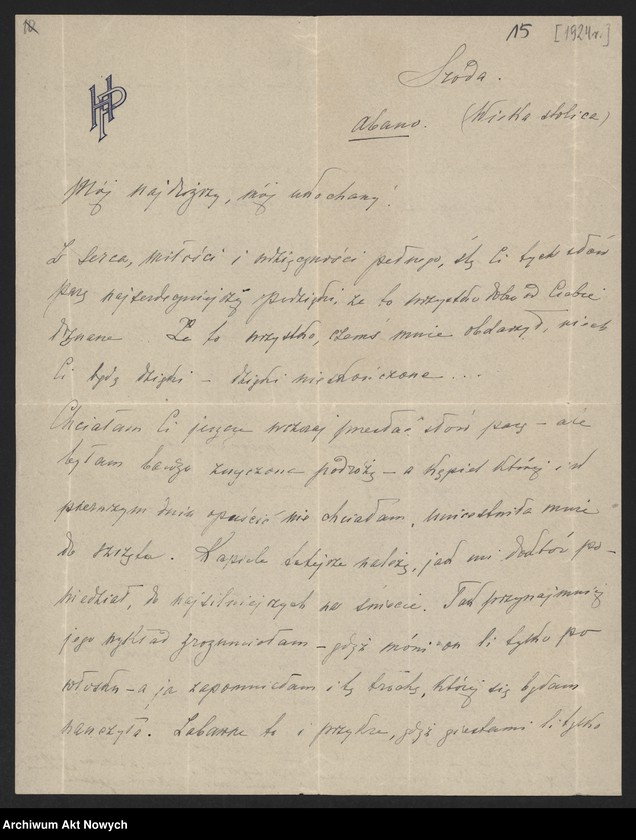 10
15 [1924r.]
HP
Środa.
Abano. (Wielka stolica)
Mój najdroższy, mój ukochany!
Z serca, miłości i wdzięczności pełnego, ślę Ci tych słów
parę najserdeczniejszej podzięki, za to wszystko dobre od Ciebie
doznane Za to wszystko, czemś mnie obdarzył, niech
Ci będą dzięki – dzięki nieskończone...
Chciałam Ci jeszcze wczoraj przesłać słów parę – ale
byłam bardzo zmęczona podróżą – a kąpiel której i w
pierwszym dniu opuścić nie chciałam, unicestwiła mnie
do reszty. Kąpiele tutejsze należą, jak mi doktór po-
wiedział, do najsilniejszych na świecie. Tak przynajmniej
jego wykład zrozumiałam – gdyż mówi on li tylko po
włosku – a ja zapomniałam i tę trochę, której się byłam
nauczyła. Zabawne to i przykre, gdyż gestami li tylko
Archiwum Akt Nowych